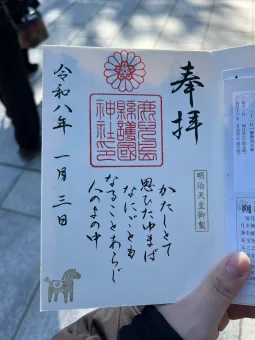 奉拝
明治天皇御製
かたしとて
思ひたゆまば
なにごとも
なることあらじ
人のよの中
鹿兒島
縣護國
神社印
令和八年 一月三日
朔